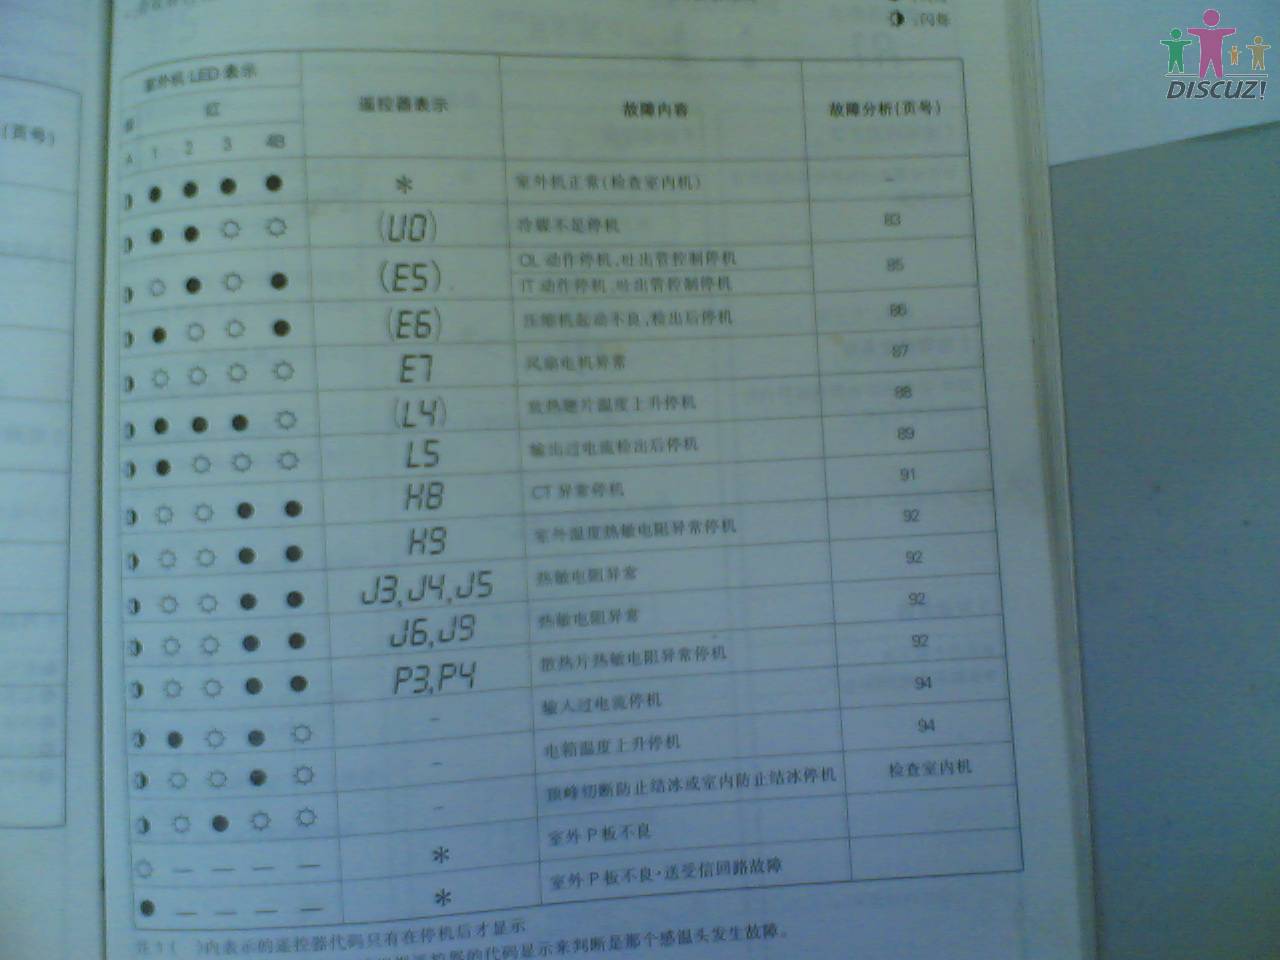 (页号)
:闪烁
DISCUZ!
室外机 LED 表示
遥控器表示
故障内容
故障分析(页号)
绿
红
A 1 2 3 4B
* 室外机正常(检查室内机) -
(U0) 冷媒不足停机 83
(E5) OL 动作停机、吐出管控制停机 85
IT 动作停机、吐出管控制停机
(E6) 压缩机起动不良,检出后停机 86
E7 风扇电机异常 87
(L4) 散热翅片温度上升停机 88
L5 输出过电流检出后停机 89
H8 CT 异常停机 91
H9 室外温度热敏电阻异常停机 92
J3,J4,J5 热敏电阻异常 92
J6,J9 热敏电阻异常 92
P3,P4 散热片热敏电阻异常停机 92
- 输入过电流停机 94
- 电箱温度上升停机 94
- 顶峰切断防止结冰或室内防止结冰停机 检查室内机
— — — — * 室外 P 板不良
— — — — * 室外 P 板不良·送受信回路故障
注 1( )内表示的遥控器代码只有在停机后才显示
遥控器的代码显示来判断是那个感温头发生故障。